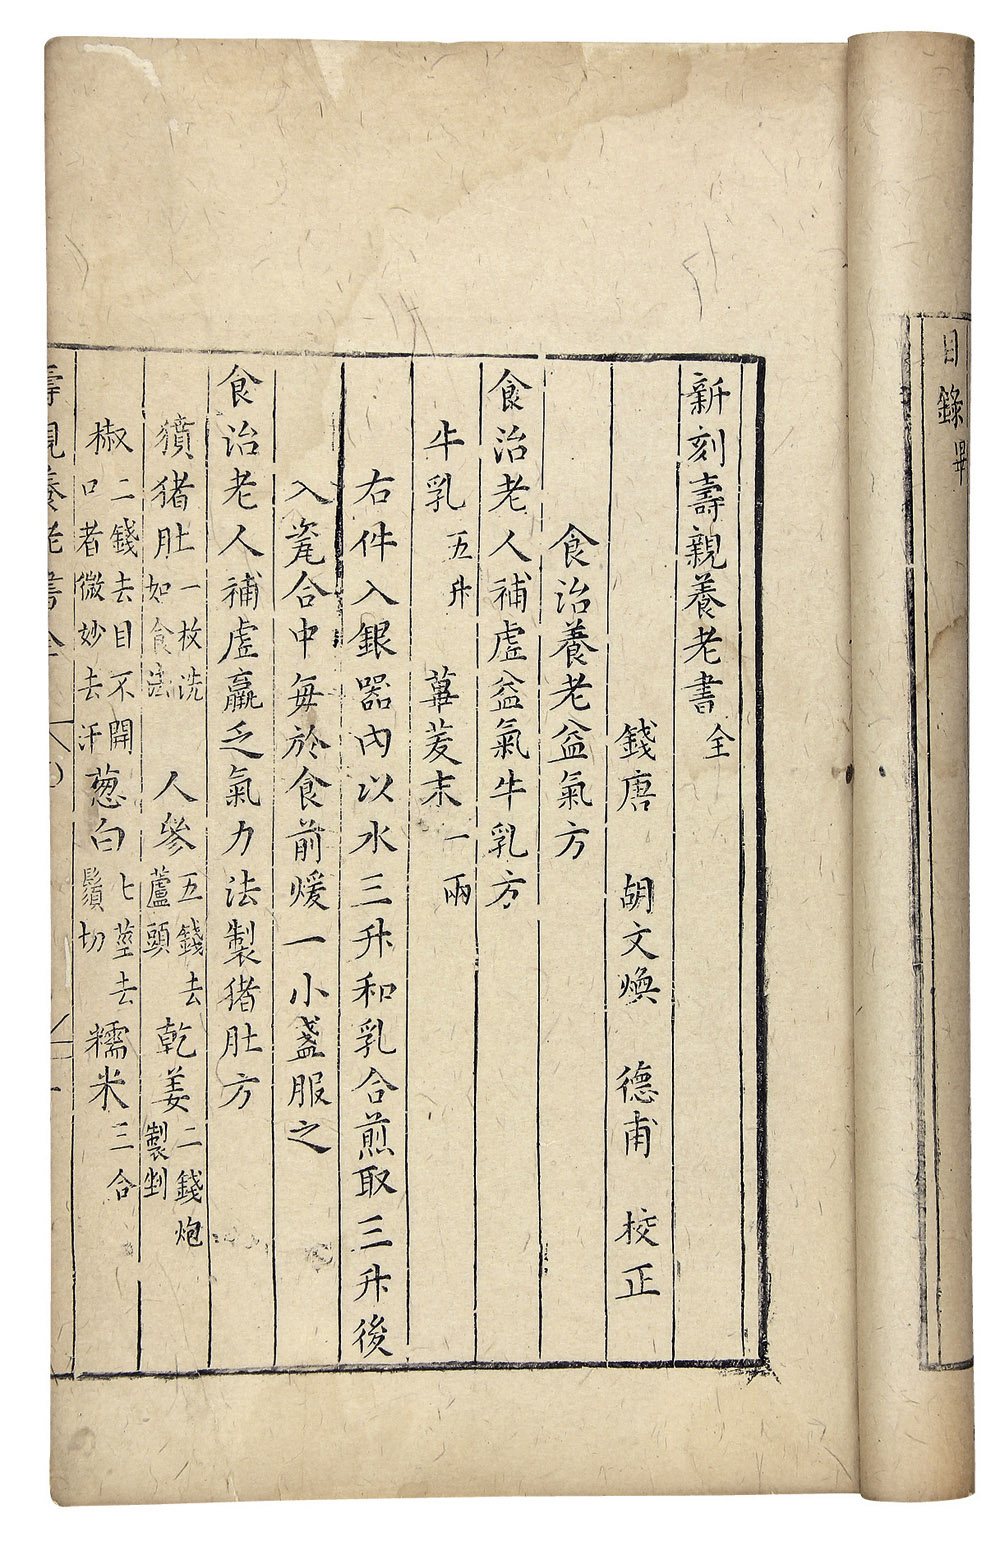 目錄畢
新刻壽親養老書全
錢唐 胡文煥 德甫 校正
食治養老益氣方
食治老人補虛益氣牛乳方
牛乳五升 蓽茇末一兩
右件入銀器內以水三升和乳合煎取三升後
入瓷合中每於食前煖一小盞服之
食治老人補虛羸乏氣力法製猪肚方
獖猪肚一枚洗如食法 人參五錢去蘆頭 乾姜二錢炮製剉
椒二錢去目不開口者微炒去汗 葱白七莖去鬚切 糯米三合
壽親養老書全